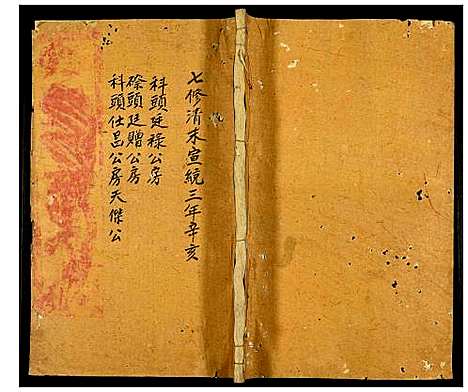 七修清末宣統三年辛亥
科頭廷祿公房
磜頭廷贈公房
科頭仕昌公房天傑公